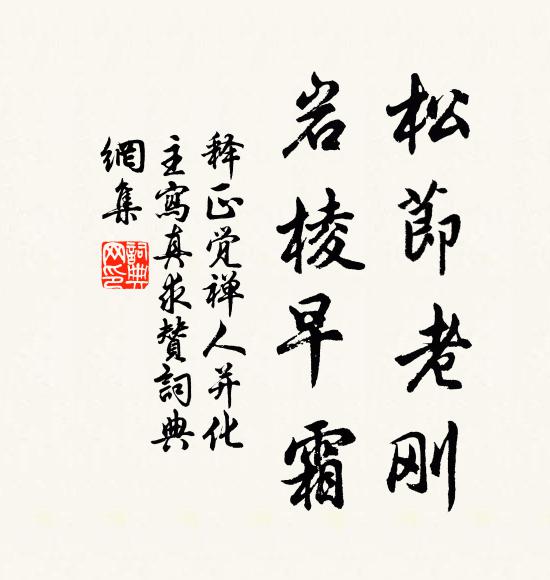 松節老刚
岩棱早霜
释正觉禅人并化
主寫真求贊詞典
網集
詞典網印